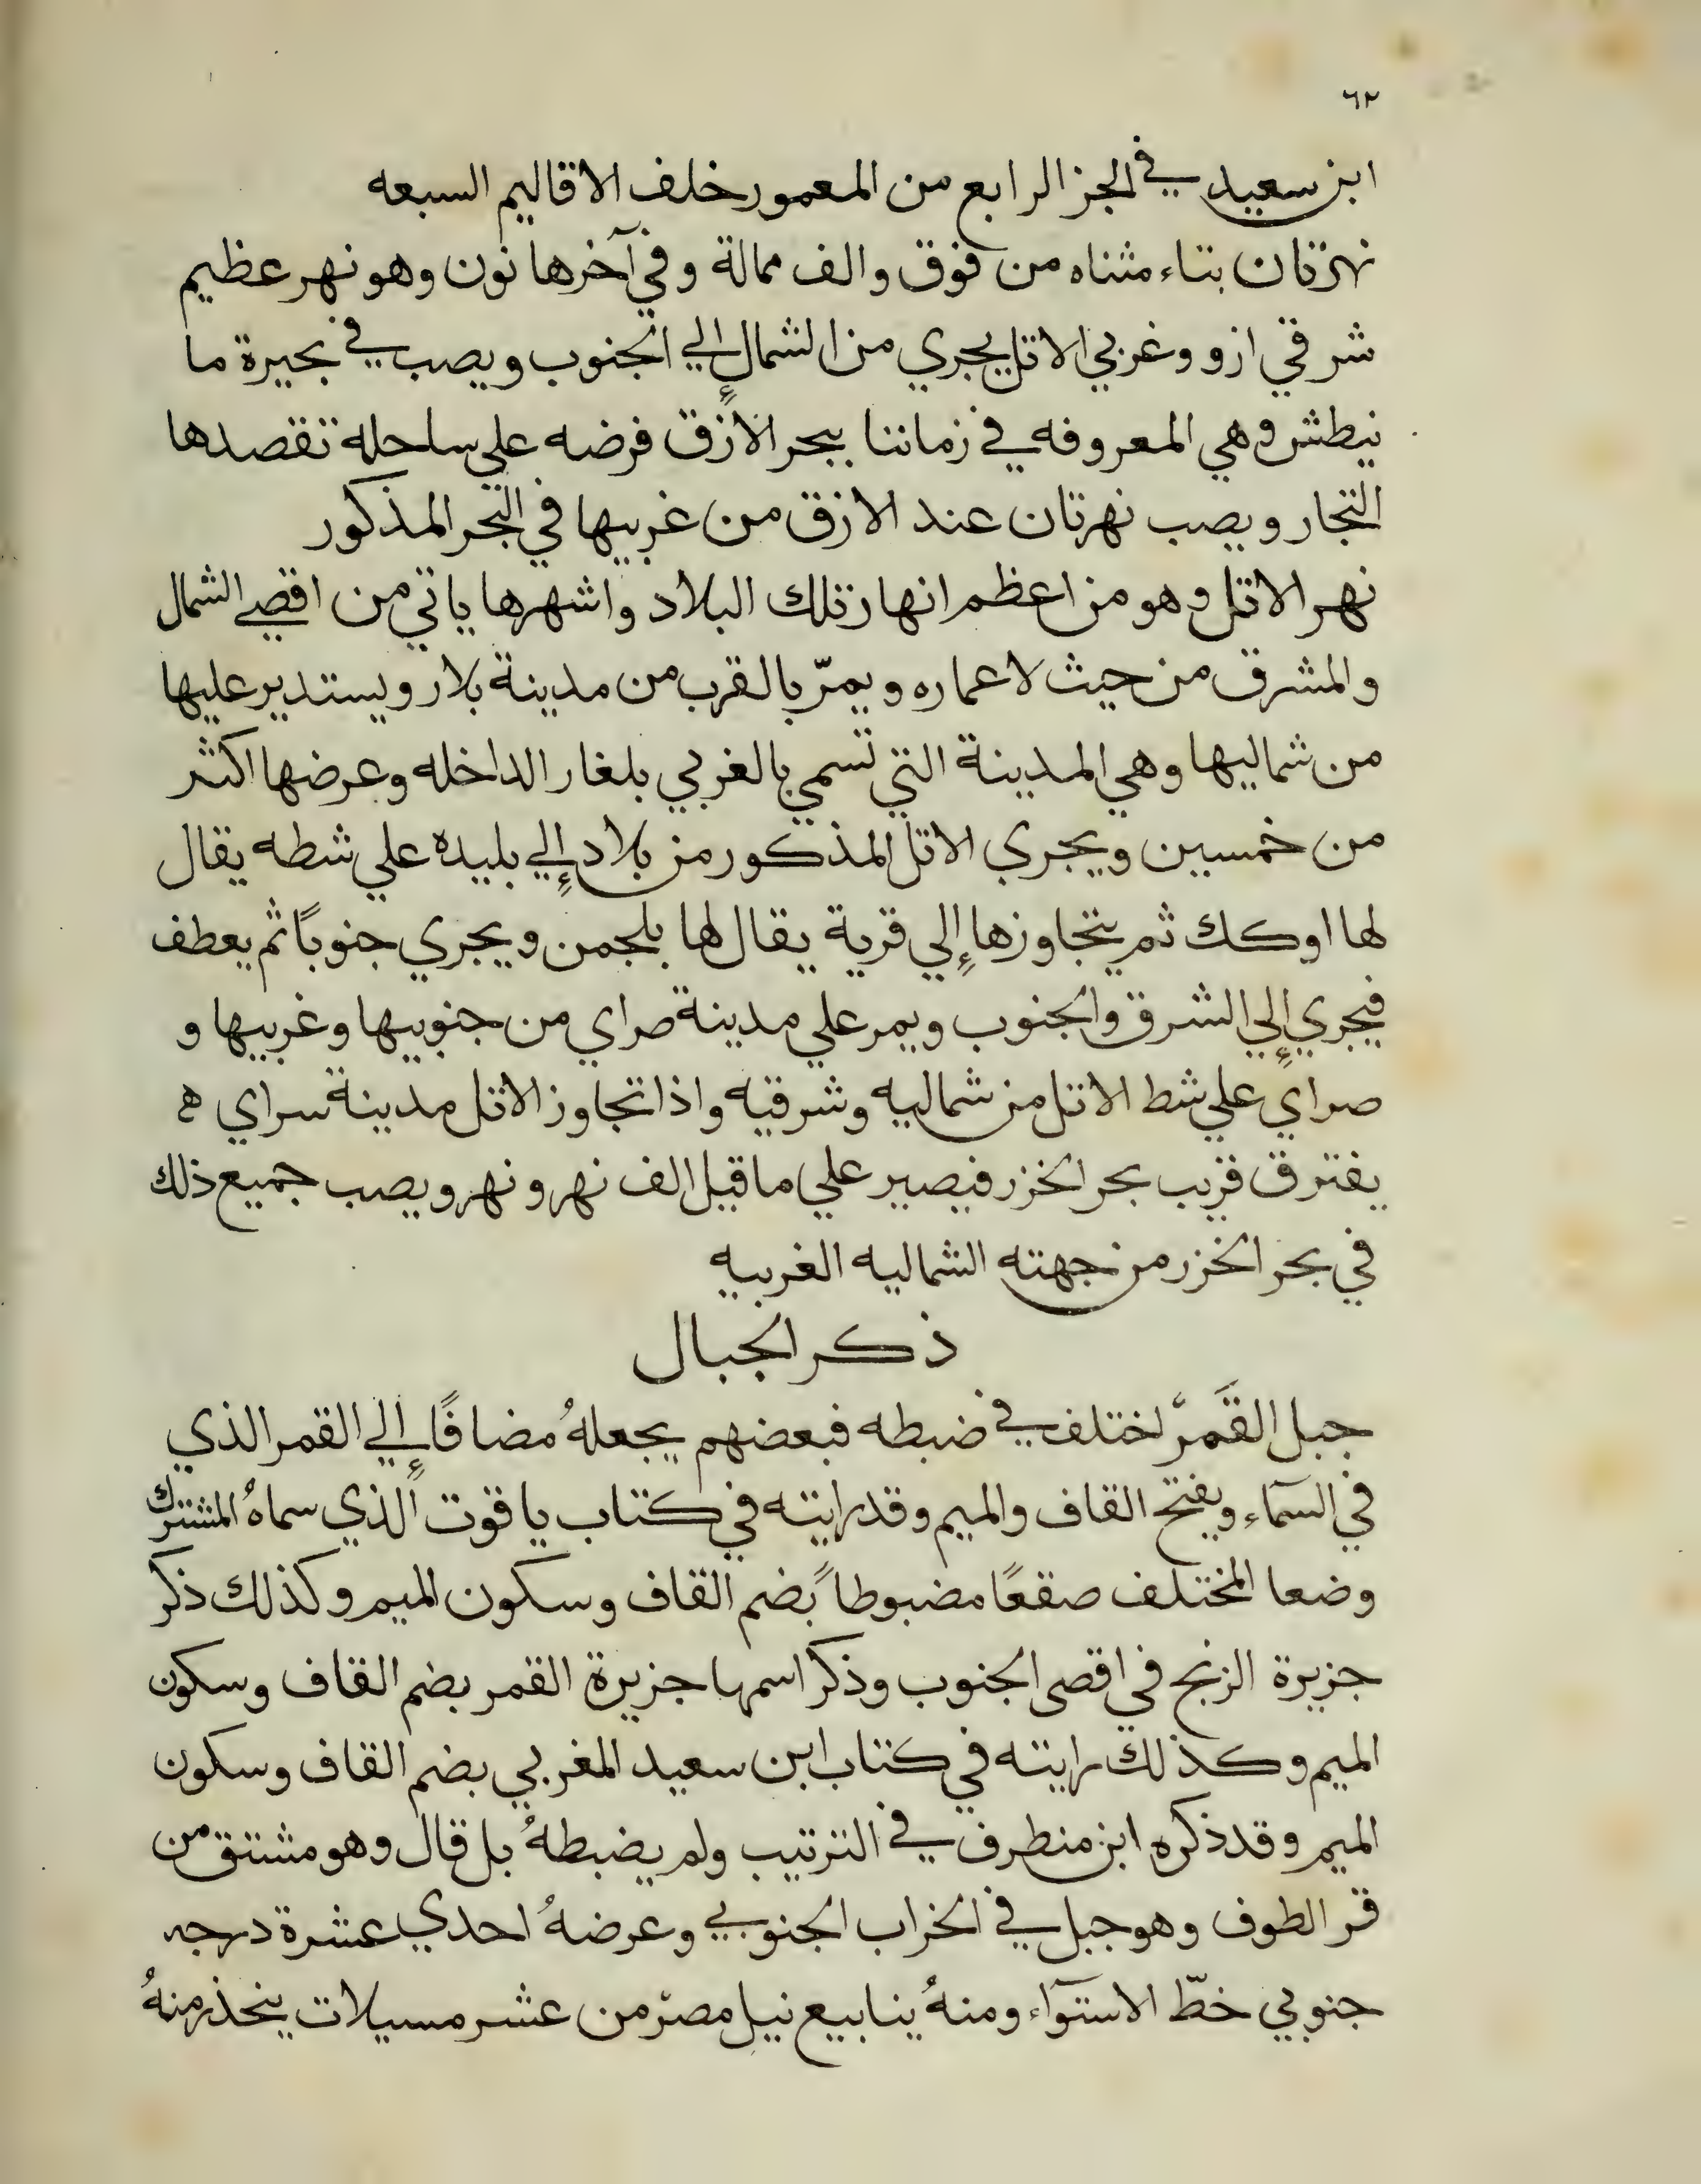 ٦٢
ابن سعيد في الجز الرابع من المعمور خلف الاقاليم السبعه
نهر تان بتاء مثناه من فوق والف ممالة وفي آخرها نون وهو نهر عظيم
شرقي ازو وغربي الاتل يجري من الشمال إلي الجنوب ويصب في بحيرة ما
نيطش وهي المعروفه في زماننا ببحر الازق فرضه علي ساحله تقصدها
التجار ويصب نهرتان عند الازق من غربيها في البحر المذكور
نهر الاتل وهو من اعظم انهار تلك البلاد واشهرها ياتي من اقصي الشمال
والمشرق من حيث لا عماره ويمرّ بالقرب من مدينة بلار ويستدير عليها
من شماليها وهي المدينة التي تسمي بالغربي بلغار الداخله وعرضها اكثر
من خمسين ويجري الاتل المذكور من بلاد إلي بليده علي شطه يقال
لها اوكك ثم يتجاوزها إلي قرية يقال لها بلجمن ويجري جنوباً ثم يعطف
فيجري إلي الشرق والجنوب ويمر علي مدينة صراي من جنوبيها وغربيها و
صراي علي شط الاتل من شماليه وشرقيه واذا تجاوز الاتل مدينة سراي ه
يفترق قريب بحر الخزر فيصير علي ما قيل الف نهر ونهر ويصب جميع ذلك
في بحر الخزر من جهته الشماليه الغربيه
ذكر الجبال
جبل القَمرّ اختلف في ضبطه فبعضهم يجعلهُ مضافًا إلي القمر الذي
في السمآء وبفتح القاف والميم وقد رايته في كتاب ياقوت الذي سماهُ المشترك
وضعا المختلف صقعًا مضبوطاً بضم القاف وسكون الميم وكذلك ذكر
جزيرة الزنج في اقصى الجنوب وذكر اسمها جزيرة القمر بضم القاف وسكون
الميم وكذلك رايته في كتاب ابن سعيد المغربي بضم القاف وسكون
الميم وقد ذكره ابن منطرف في الترتيب ولم يضبطهُ بل قال وهو مشتق من
قمر الطوف وهو جبل في الخراب الجنوبي وعرضهُ احدي عشرة درجه
جنوبي خطّ الاستوآء ومنهُ ينابيع نيل مصرّ من عشر مسيلات ينحذر منهُ